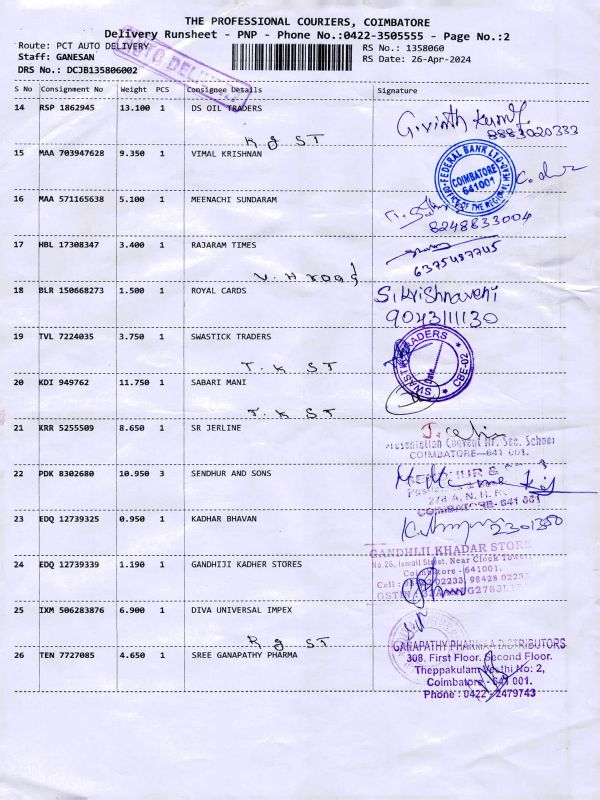 THE PROFESSIONAL COURIERS, COIMBATORE
Delivery Runsheet - PNP - Phone No.:0422-3505555 - Page No.:2
Route: PCT AUTO DELIVERY
RS No.: 1358060
Staff: GANESAN
RS Date: 26-Apr-2024
DRS No.: DCJB135806002
AUTO DELIVERY
S No Consignment No Weight PCS Consignee Details Signature
14 RSP 1862945 13.100 1 DS OIL TRADERS
8883020333
R g ST
15 MAA 703947628 9.350 1 VIMAL KRISHNAN
FEDERAL BANK LTD
COIMBATORE
641001
16 MAA 571165638 5.100 1 MEENACHI SUNDARAM
8248833004
17 HBL 17308347 3.400 1 RAJARAM TIMES
6375487745
V. H road
18 BLR 150668273 1.500 1 ROYAL CARDS
S. Krishnaveni
9043111130
19 TVL 7224035 3.750 1 SWASTICK TRADERS
SWASTICK TRADERS CBE-02
Date
T. K ST
20 KDI 949762 11.750 1 SABARI MANI
T. K ST
21 KRR 5255509 8.650 1 SR JERLINE
Presentation Convent Hr. Sec. School
COIMBATORE-641 001.
22 PDK 8302680 10.950 3 SENDHUR AND SONS
COIMBATORE- 641 001
23 EDQ 12739325 0.950 1 KADHAR BHAVAN
2301350
24 EDQ 12739339 1.190 1 GANDHIJI KADHER STORES
GANDHIJI KHADAR STORE
No.26, Ismail Street, Near Clock Tower
Coimbatore - 641001.
25 IXM 506283876 6.900 1 DIVA UNIVERSAL IMPEX
R g ST
26 TEN 7727085 4.650 1 SREE GANAPATHY PHARMA
GANAPATHY PHARMAA DISTRIBUTORS
308, First Floor, Second Floor.
Theppakulam Veethi No: 2,
Coimbatore - 641 001.
Phone : 0422 - 2479743